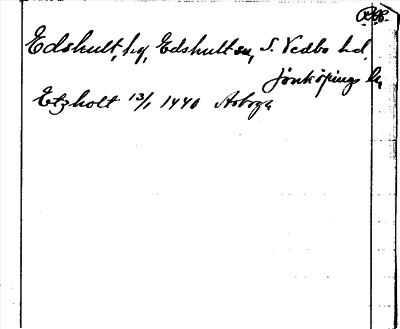 Edshult, hg, Edshult sn, S. Vedbo hd,
Jönköpings län
Etzholt 13/1 1440 Arboga